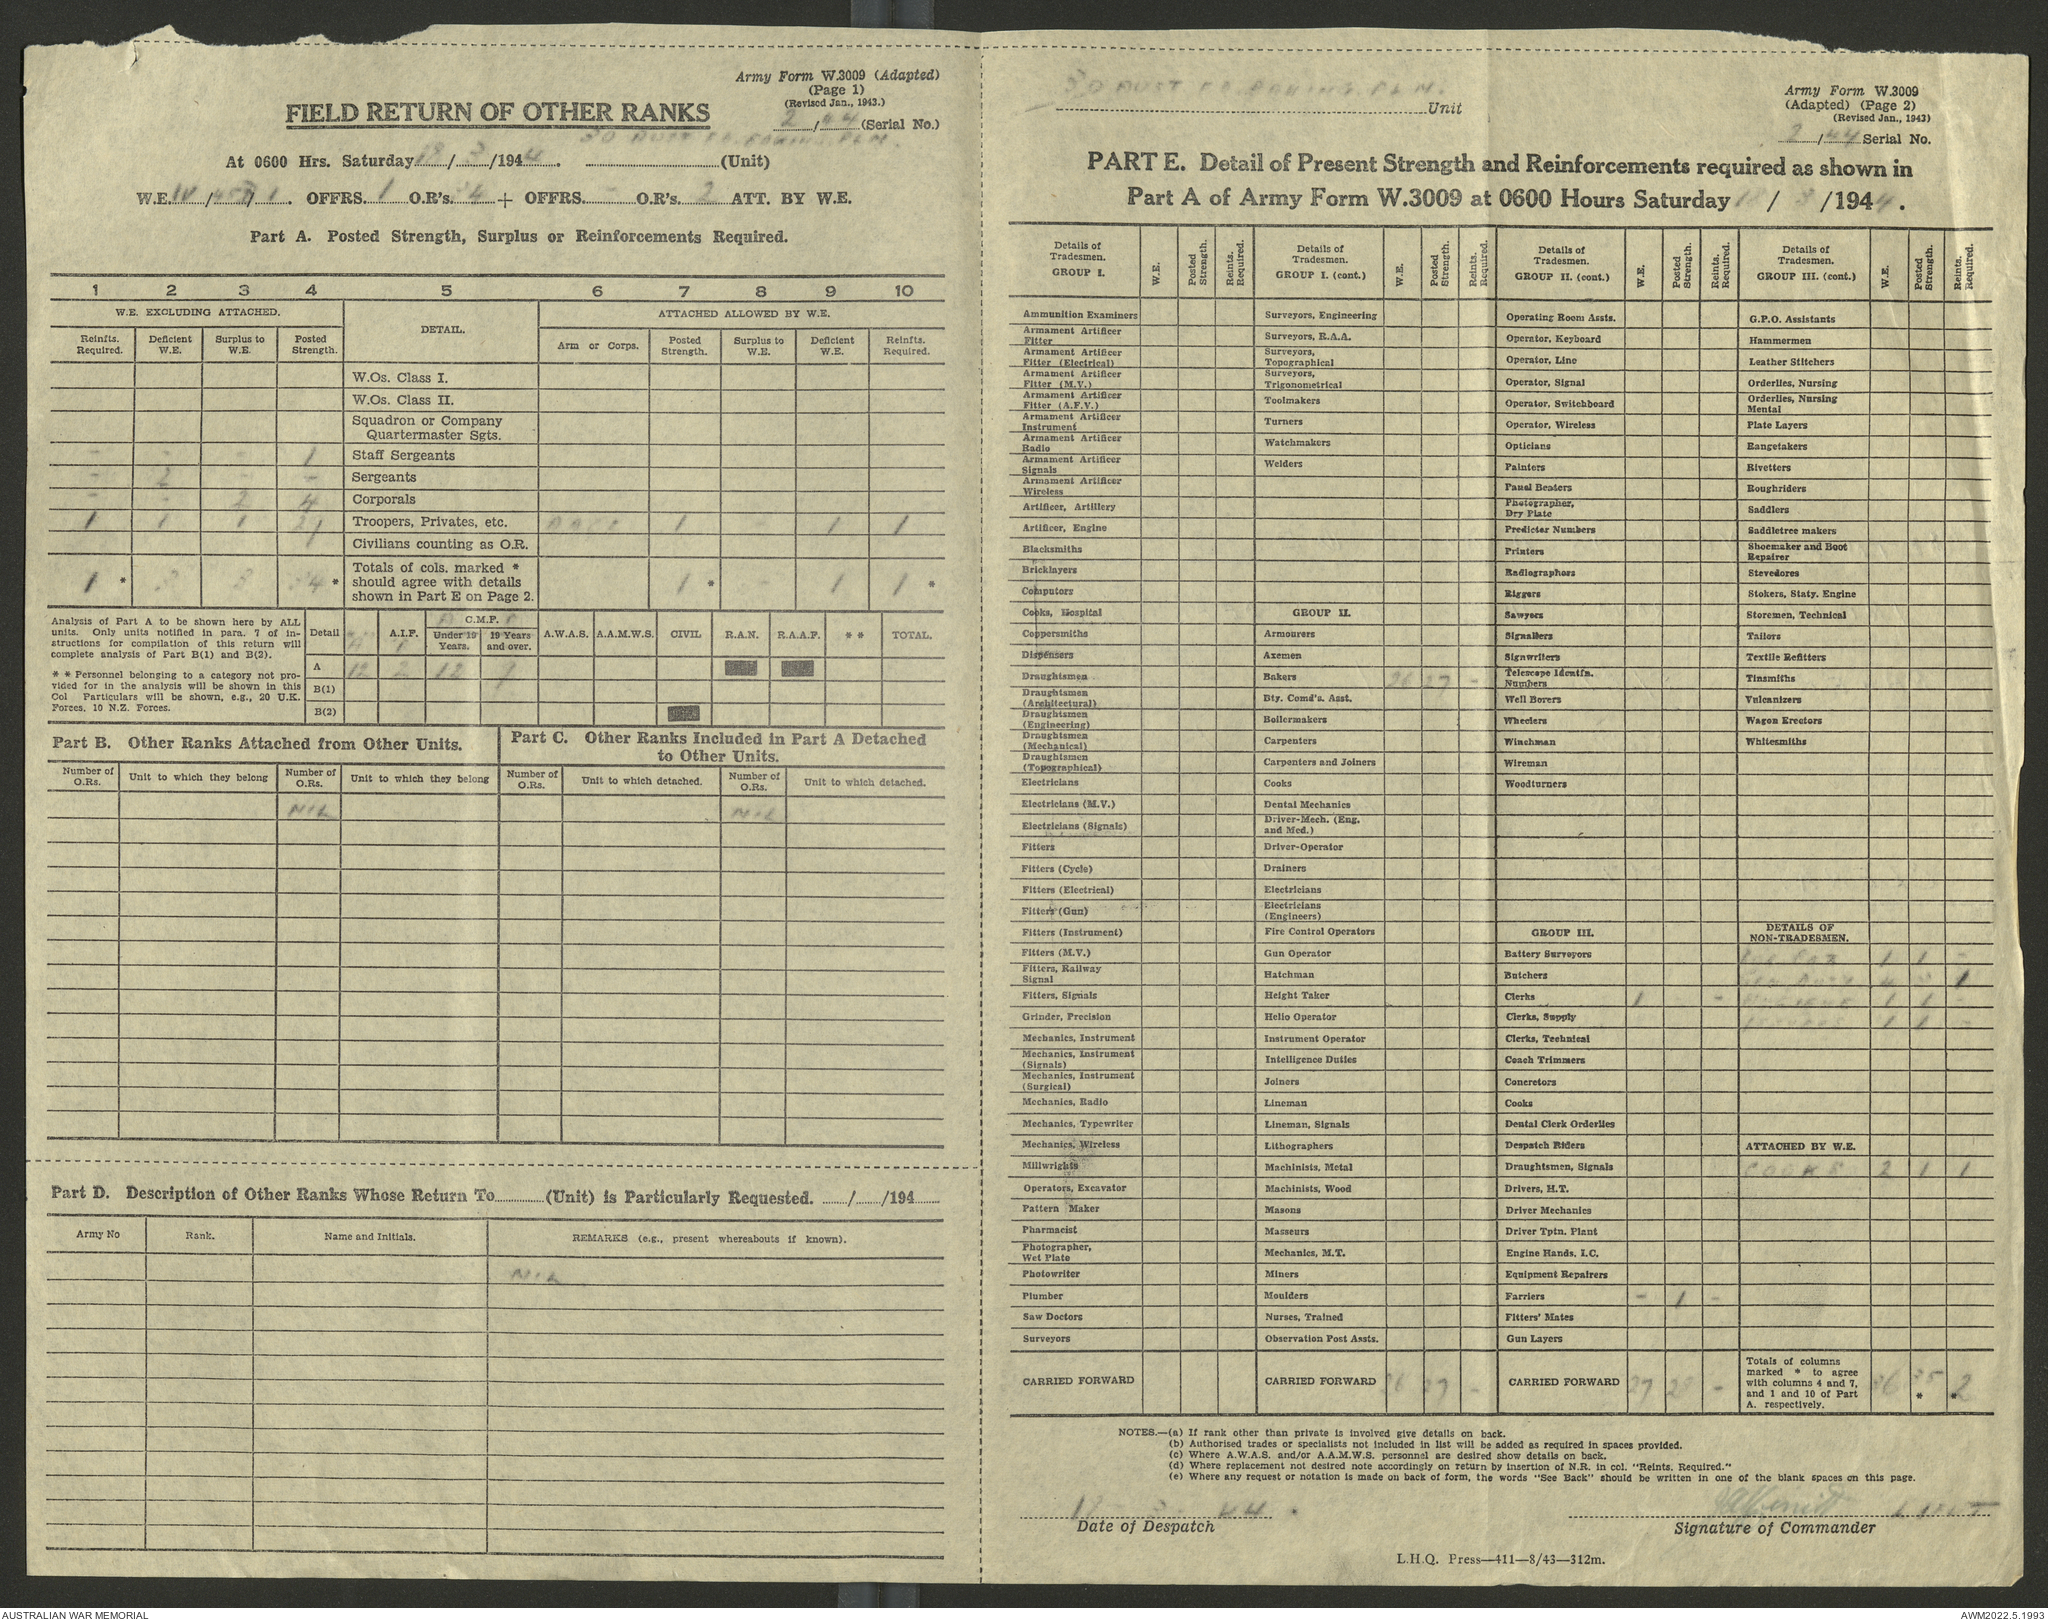 Army Form W.3009 (Adapted)
(Page 1)
(Revised Jan., 1943.)
FIELD RETURN OF OTHER RANKS
2/44 (Serial No.)
At 0600 Hrs. Saturday 18/3/1944. 30 AUST FD. BAKING PLN. (Unit)
W.E. IV/ /1. OFFRS. 1 O.R's. 34 + OFFRS. - O.R's. 2 ATT. BY W.E.
Part A. Posted Strength, Surplus or Reinforcements Required.
1 2 3 4 5 6 7 8 9 10
W.E. EXCLUDING ATTACHED. DETAIL. ATTACHED ALLOWED BY W.E.
Reinfts. Required. Deficient W.E. Surplus to W.E. Posted Strength. Arm or Corps. Posted Strength. Surplus to W.E. Deficient W.E. Reinfts. Required.
W.Os. Class I.
W.Os. Class II.
Squadron or Company Quartermaster Sgts.
- - - 1 Staff Sergeants
- 2 - - Sergeants
- - 2 4 Corporals
1 1 1 Troopers, Privates, etc. AACC 1 - 1 1
Civilians counting as O.R.
1 * 3 3 34 * Totals of cols. marked * should agree with details shown in Part E on Page 2. 1 * - 1 1 *
Analysis of Part A to be shown here by ALL units. Only units notified in para. 7 of instructions for compilation of this return will complete analysis of Part B(1) and B(2).
* * Personnel belonging to a category not provided for in the analysis will be shown in this Col Particulars will be shown, e.g., 20 U.K. Forces, 10 N.Z. Forces.
Detail A.I.F. C.M.F. Under 19 Years. 19 Years and over. A.W.A.S. A.A.M.W.S. CIVIL R.A.N. R.A.A.F. * * TOTAL.
A 12 2 12 9
B(1)
B(2)
Part B. Other Ranks Attached from Other Units.
Number of O.Rs. Unit to which they belong Number of O.Rs. Unit to which they belong
NIL
Part C. Other Ranks Included in Part A Detached to Other Units.
Number of O.Rs. Unit to which detached. Number of O.Rs. Unit to which detached.
NIL
Part D. Description of Other Ranks Whose Return To (Unit) is Particularly Requested. / /194
Army No Rank. Name and Initials. REMARKS (e.g., present whereabouts if known).
NIL
30 AUST FD. BAKING PLN. Unit
Army Form W.3009
(Adapted) (Page 2)
(Revised Jan., 1943)
2/44 Serial No.
PART E. Detail of Present Strength and Reinforcements required as shown in
Part A of Army Form W.3009 at 0600 Hours Saturday 18/3/1944.
Details of Tradesmen. GROUP I. W.E. Posted Strength. Reints. Required.
Ammunition Examiners
Armament Artificer Fitter
Armament Artificer Fitter (Electrical)
Armament Artificer Fitter (M.V.)
Armament Artificer Fitter (A.F.V.)
Armament Artificer Instrument
Armament Artificer Radio
Armament Artificer Signals
Armament Artificer Wireless
Artificer, Artillery
Artificer, Engine
Blacksmiths
Bricklayers
Computors
Cooks, Hospital
Coppersmiths
Dispensers
Draughtsmen
Draughtsmen (Architectural)
Draughtsmen (Engineering)
Draughtsmen (Mechanical)
Draughtsmen (Topographical)
Electricians
Electricians (M.V.)
Electricians (Signals)
Fitters
Fitters (Cycle)
Fitters (Electrical)
Fitters (Gun)
Fitters (Instrument)
Fitters (M.V.)
Fitters, Railway Signal
Fitters, Signals
Grinder, Precision
Mechanics, Instrument
Mechanics, Instrument (Signals)
Mechanics, Instrument (Surgical)
Mechanics, Radio
Mechanics, Typewriter
Mechanics, Wireless
Millwrights
Operators, Excavator
Pattern Maker
Pharmacist
Photographer, Wet Plate
Photowriter
Plumber
Saw Doctors
Surveyors
CARRIED FORWARD
Details of Tradesmen. GROUP I. (cont.) W.E. Posted Strength. Reints. Required.
Surveyors, Engineering
Surveyors, R.A.A.
Surveyors, Topographical
Surveyors, Trigonometrical
Toolmakers
Turners
Watchmakers
Welders
GROUP II.
Armourers
Axemen
Bakers 26 27 -
Bty. Comd's. Asst.
Boilermakers
Carpenters
Carpenters and Joiners
Cooks
Dental Mechanics
Driver-Mech. (Eng. and Med.)
Driver-Operator
Drainers
Electricians
Electricians (Engineers)
Fire Control Operators
Gun Operator
Hatchman
Height Taker
Helio Operator
Instrument Operator
Intelligence Duties
Joiners
Lineman
Lineman, Signals
Lithographers
Machinists, Metal
Machinists, Wood
Masons
Masseurs
Mechanics, M.T.
Miners
Moulders
Nurses, Trained
Observation Post Assts.
CARRIED FORWARD 26 27 -
Details of Tradesmen. GROUP II. (cont.) W.E. Posted Strength. Reints. Required.
Operating Room Assts.
Operator, Keyboard
Operator, Line
Operator, Signal
Operator, Switchboard
Operator, Wireless
Opticians
Painters
Panel Beaters
Photographer, Dry Plate
Predictor Numbers
Printers
Radiographers
Riggers
Sawyers
Signallers
Signwriters
Telescope Identfn. Numbers
Well Borers
Wheelers
Winchman
Wireman
Woodturners
GROUP III.
Battery Surveyors
Butchers
Clerks 1 - -
Clerks, Supply
Clerks, Technical
Coach Trimmers
Concretors
Cooks
Dental Clerk Orderlies
Despatch Riders
Draughtsmen, Signals
Drivers, H.T.
Driver Mechanics
Driver Tptn. Plant
Engine Hands, I.C.
Equipment Repairers
Farriers - 1 -
Fitters' Mates
Gun Layers
CARRIED FORWARD 27 28 -
Details of Tradesmen. GROUP III. (cont.) W.E. Posted Strength. Reints. Required.
G.P.O. Assistants
Hammermen
Leather Stitchers
Orderlies, Nursing
Orderlies, Nursing Mental
Plate Layers
Rangetakers
Rivetters
Roughriders
Saddlers
Saddletree makers
Shoemaker and Boot Repairer
Stevedores
Stokers, Staty. Engine
Storemen, Technical
Tailors
Textile Refitters
Tinsmiths
Vulcanizers
Wagon Erectors
Whitesmiths
DETAILS OF NON-TRADESMEN.
1 1 -
4 1
HYGIENE 1 1
1 1 -
ATTACHED BY W.E.
COOKS 2 1 1
Totals of columns marked * to agree with columns 4 and 7, and 1 and 10 of Part A. respectively. 36 35 * 2 *
NOTES.—(a) If rank other than private is involved give details on back.
(b) Authorised trades or specialists not included in list will be added as required in spaces provided.
(c) Where A.W.A.S. and/or A.A.M.W.S. personnel are desired show details on back.
(d) Where replacement not desired note accordingly on return by insertion of N.R. in col. "Reints. Required."
(e) Where any request or notation is made on back of form, the words "See Back" should be written in one of the blank spaces on this page.
- 3 - 44.
Date of Despatch
LIEUT
Signature of Commander
L.H.Q. Press—411—8/43—312m.
AUSTRALIAN WAR MEMORIAL
AWM2022.5.1993